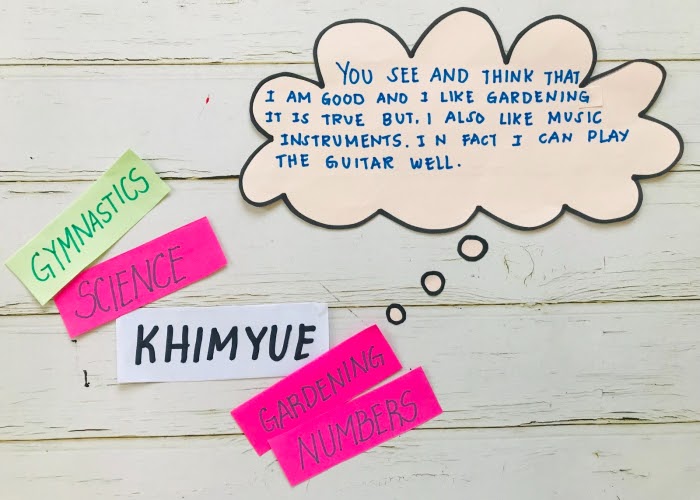 YOU SEE AND THINK THAT
I AM GOOD AND I LIKE GARDENING
IT IS TRUE BUT, I ALSO LIKE MUSIC
INSTRUMENTS. IN FACT I CAN PLAY
THE GUITAR WELL.
GYMNASTICS
SCIENCE
KHIMYUE
GARDENING
NUMBERS